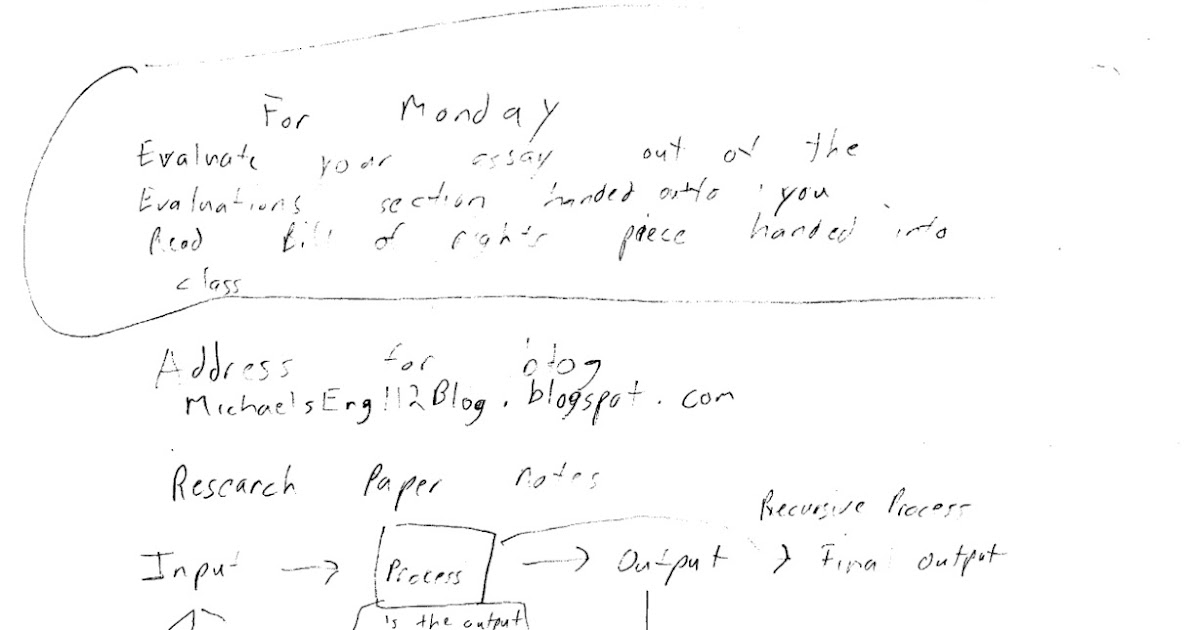 For Monday
Evaluate your essay out of the
Evaluations section handed out to you
Read Bill of rights piece handed into
class
Address for blog
MichaelsEng112Blog.blogspot.com
Research Paper notes
Recursive Process
Input → Process → Output → Final output
is the output